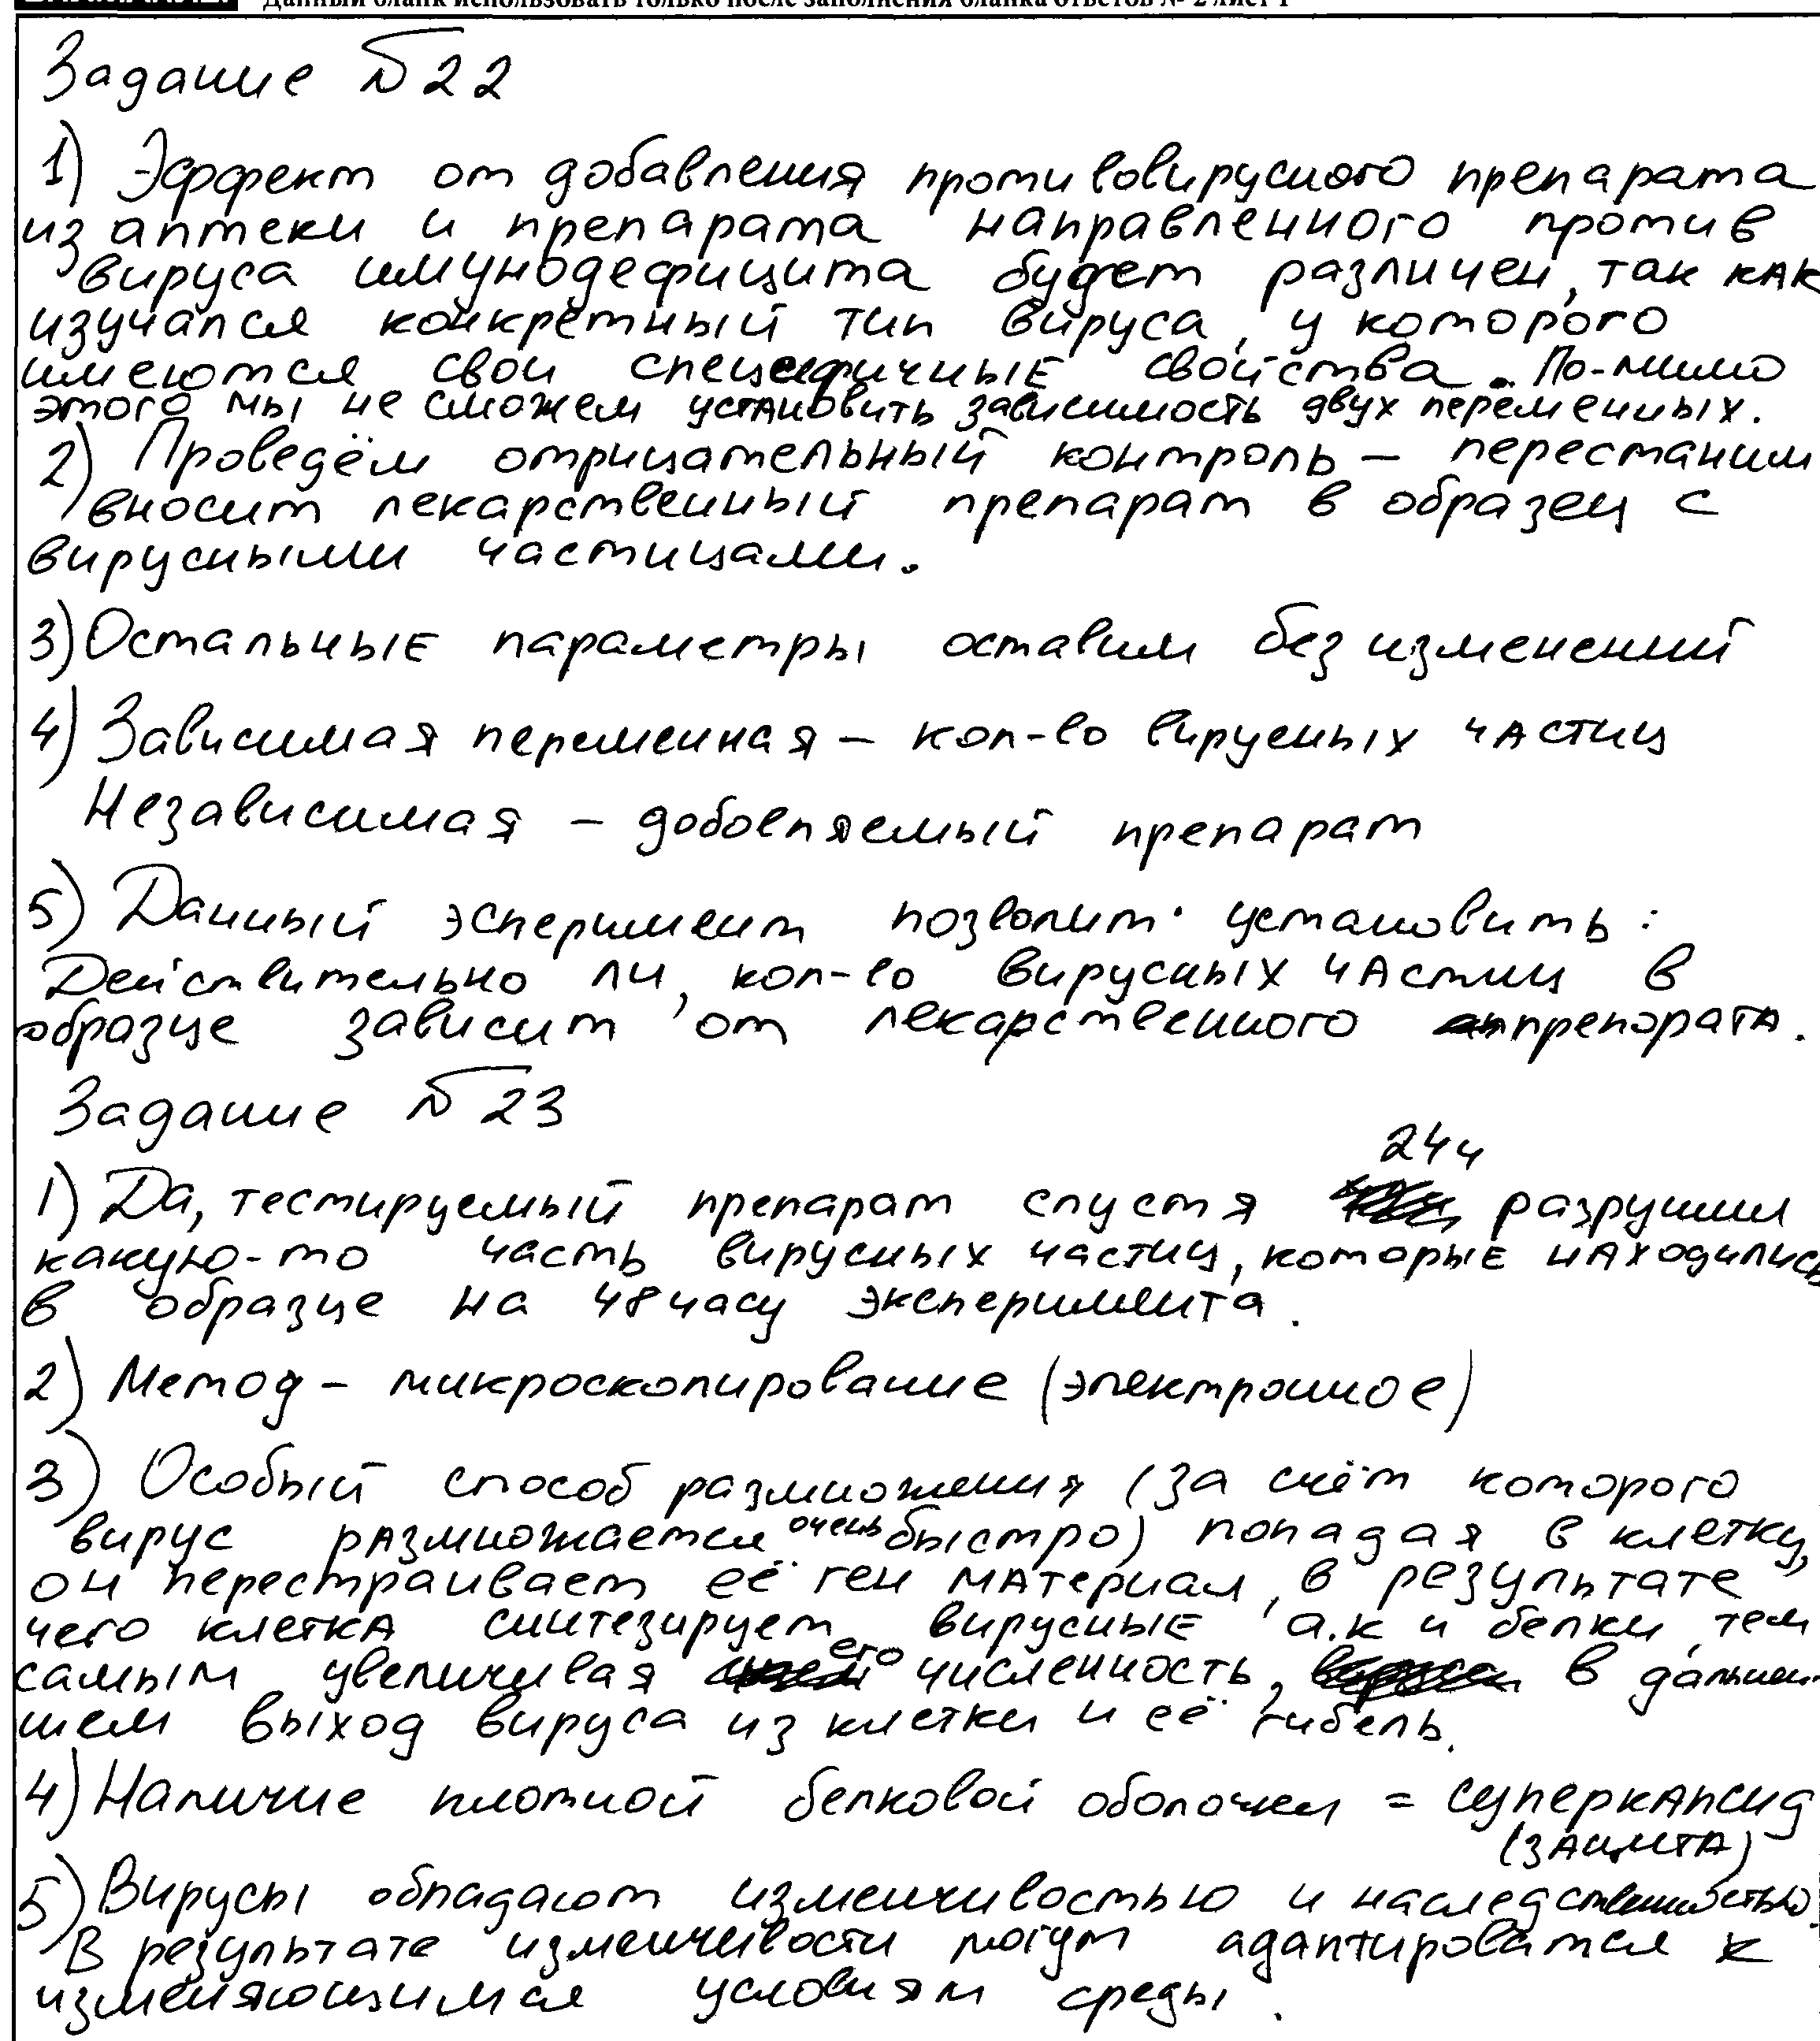 Данный бланк использовать только после заполнения бланка ответов № 2 лист 1
Задание №22
1) Эффект от добавления противовирусного препарата
из аптеки и препарата направленного против
вируса имунодефицита будет различен, так как
изучался конкретный тип вируса, у которого
имеются свои специфичные свойства. По-мимо
этого мы не сможем установить зависимость двух переменных.
2) Проведём отрицательный контроль – перестаним
вносит лекарственный препарат в образец с
вирусными частицами.
3) Остальные параметры оставим без изменений
4) Зависимая переменная – кол-во вирусных частиц
Независимая – добовляемый препарат
5) Данный эсперимент позволит установить:
Действительно ли, кол-во вирусных частиц в
образце зависит от лекарственного препората.
Задание №23
24ч
1) Да, тестируемый препарат спустя разрушил
какую-то часть вирусных частиц, которые находились
в образце на 48 часу эксперимента.
2) Метод – микроскопирование (электронное)
3) Особый способ размножения (за счёт которого
вирус размножается очень быстро) попадая в клетку,
он перестраивает её ген материал, в результате
чего клетка синтезирует вирусные а.к и белки, тем
самым увеличивая его численность, в дальней-
шем выход вируса из клетки и её гибель.
4) Наличие плотной белковой оболочки = суперкапсид
(защита)
5) Вирусы обладают изменчивостью и наследственностью.
В результате изменчивости могут адаптироватся к
изменяющимся условиям среды.